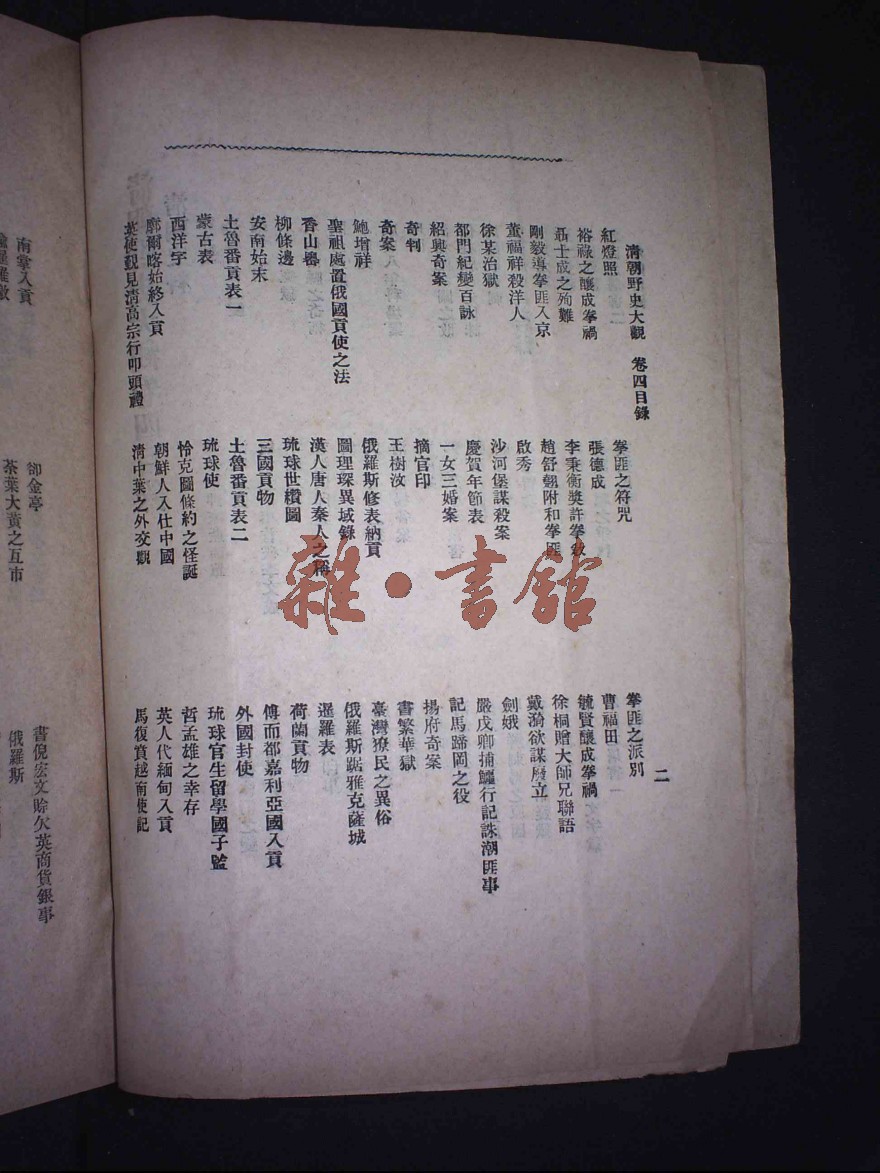 清朝野史大觀 卷四目錄
二
紅燈照
拳匪之符咒
拳匪之派別
裕祿之釀成拳禍
張德成
曹福田
聶士成之殉難
李秉衡獎許拳
毓賢釀成拳禍
剛毅導拳匪入京
趙舒翹附和拳匪
徐桐贈大師兄聯語
董福祥殺洋人
啟秀
戴漪欲謀廢立
徐某治獄
沙河堡謀殺案
劍娥
都門紀變百詠
慶賀年節表
嚴戊卿捕鱷行記誅潮匪事
紹興奇案
一女三婚案
記馬蹄岡之役
奇判
摘官印
揚府奇案
奇案
王樹汶
書繁華獄
鮑增祥
俄羅斯修表納貢
臺灣獠民之異俗
聖祖處置俄國貢使之法
圖理琛異域錄
俄羅斯踞雅克薩城
香山墺
漢人唐人秦人之稱
暹羅表
柳條邊
琉球世纘圖
荷蘭貢物
安南始末
三國貢物
傅而都嘉利亞國入貢
土魯番貢表一
土魯番貢表二
外國封使
蒙古表
琉球使
琉球官生留學國子監
西洋字
恰克圖條約之怪誕
哲孟雄之幸存
廓爾喀始終入貢
朝鮮人入仕中國
英人代緬甸入貢
英使覲見清高宗行叩頭禮
清中葉之外交觀
馬復賁越南使記
南掌入貢
卻金亭
書倪宏文賒欠英商貨銀事
茶葉大黃之互市
俄羅斯
雜·書館